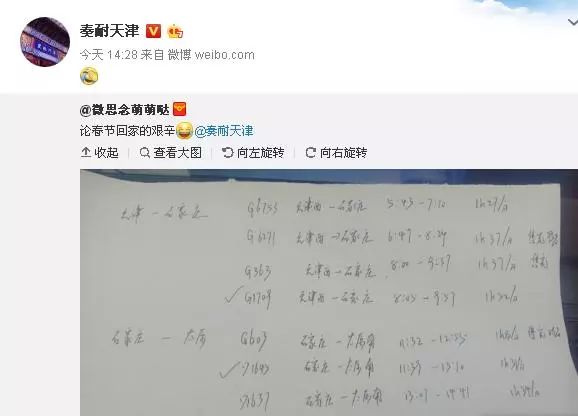 奏耐天津
今天 14:28 来自 微博 weibo.com
@微思念萌萌哒
论春节回家的艰辛@奏耐天津
收起 查看大图 向左旋转 向右旋转
天津 — 石家庄 G6753 天津西 — 石家庄 5:43 - 7:10 1h27/
G6271 天津西 → 石家庄 6:47 - 8:24 1h37/
G363 天津西 — 石家庄 8:00 - 9:37 1h37/
G1709 天津西 — 石家庄 8:05 - 9:37 1h32/
石家庄 — 太原 G603 石家庄 — 太原南 11:32 - 12:55
石家庄 — 太原南 11:39 - 13:10
石家庄 — 太原南 13:07 - 14:41 1h34/